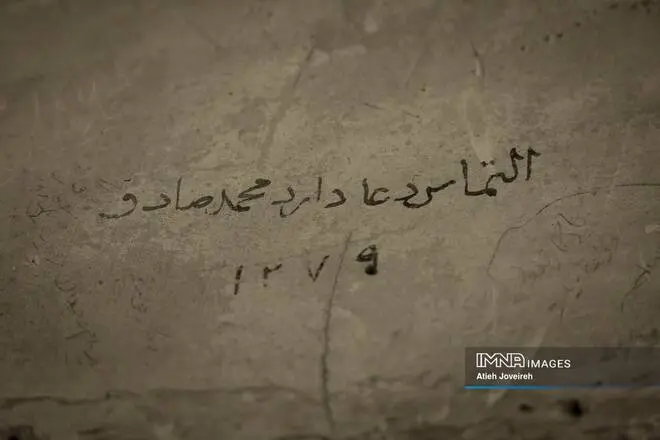 التماس دعا دارد محمد صادق
۱۲۷۹
IMNA IMAGES
Atieh Joveireh